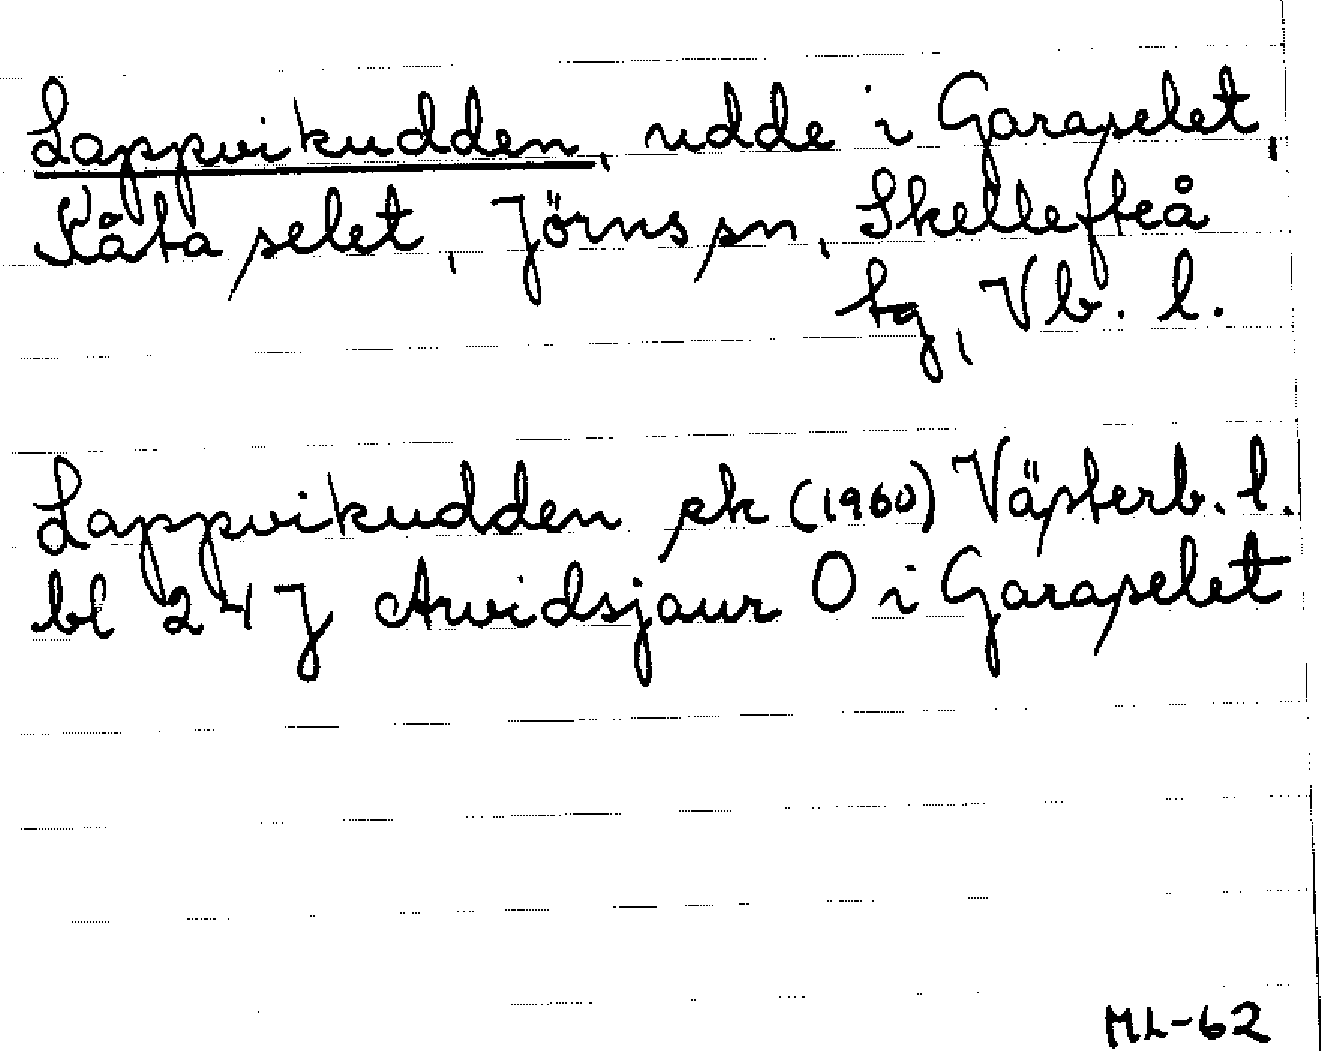 Lappvikudden, udde i Garaselet,
Kåtaselet, Jörns sn, Skellefteå
tg, Vb. l.
Lappvikudden ek (1960) Västerb. l.
bl 24 J Arvidsjaur O i Garaselet
ML-62